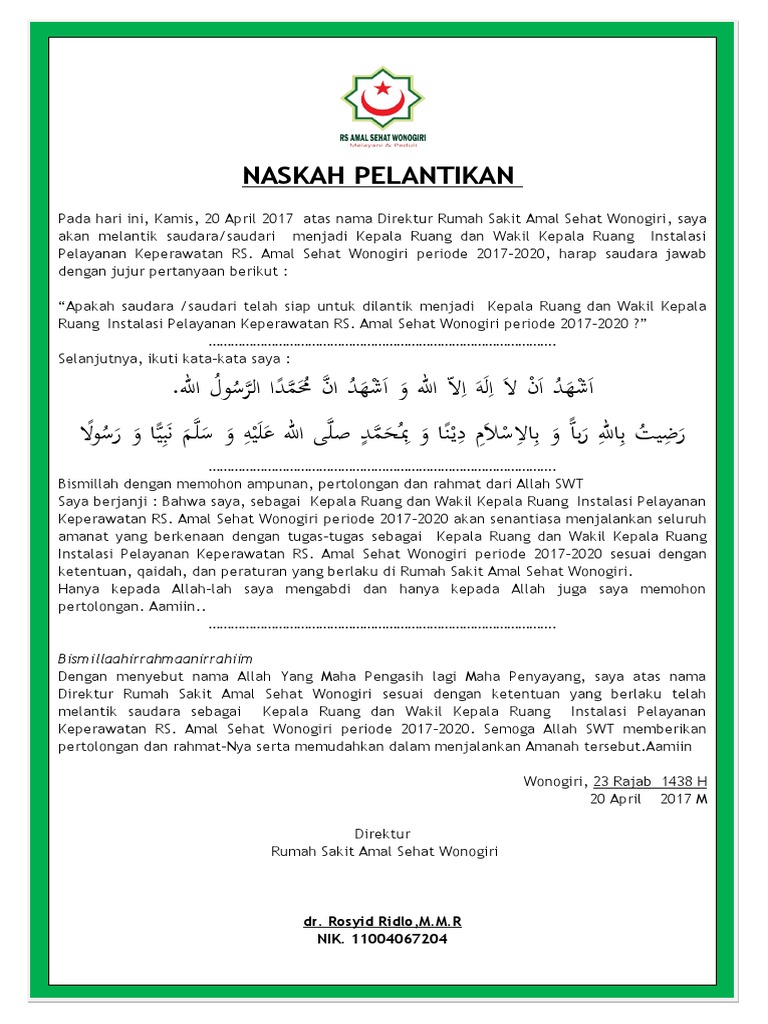 RS AMAL SEHAT WONOGIRI
Melayani & Peduli
NASKAH PELANTIKAN
Pada hari ini, Kamis, 20 April 2017 atas nama Direktur Rumah Sakit Amal Sehat Wonogiri, saya
akan melantik saudara/saudari menjadi Kepala Ruang dan Wakil Kepala Ruang Instalasi
Pelayanan Keperawatan RS. Amal Sehat Wonogiri periode 2017-2020, harap saudara jawab
dengan jujur pertanyaan berikut :
“Apakah saudara /saudari telah siap untuk dilantik menjadi Kepala Ruang dan Wakil Kepala
Ruang Instalasi Pelayanan Keperawatan RS. Amal Sehat Wonogiri periode 2017-2020 ?”
………………………………………………………………………………….
Selanjutnya, ikuti kata-kata saya :
اَشْهَدُ اَنْ لاَ اِلَهَ اِلاّ الله وَ اَشْهَدُ انَّ مُحَمَّدًا الرَّسُولُ الله.
رَضِيتُ بِاللهِ رَباًّ وَ بِالاِسْلاَمِ دِيْنًا وَ بِمُحَمَّدٍ صلَّى الله عَلَيْهِ وَ سَلَّمَ نَبِيًّا وَ رَسُولًا
………………………………………………………………………………….
Bismillah dengan memohon ampunan, pertolongan dan rahmat dari Allah SWT
Saya berjanji : Bahwa saya, sebagai Kepala Ruang dan Wakil Kepala Ruang Instalasi Pelayanan
Keperawatan RS. Amal Sehat Wonogiri periode 2017-2020 akan senantiasa menjalankan seluruh
amanat yang berkenaan dengan tugas-tugas sebagai Kepala Ruang dan Wakil Kepala Ruang
Instalasi Pelayanan Keperawatan RS. Amal Sehat Wonogiri periode 2017-2020 sesuai dengan
ketentuan, qaidah, dan peraturan yang berlaku di Rumah Sakit Amal Sehat Wonogiri.
Hanya kepada Allah-lah saya mengabdi dan hanya kepada Allah juga saya memohon
pertolongan. Aamiin..
………………………………………………………………………………….
Bismillaahirrahmaanirrahiim
Dengan menyebut nama Allah Yang Maha Pengasih lagi Maha Penyayang, saya atas nama
Direktur Rumah Sakit Amal Sehat Wonogiri sesuai dengan ketentuan yang berlaku telah
melantik saudara sebagai Kepala Ruang dan Wakil Kepala Ruang Instalasi Pelayanan
Keperawatan RS. Amal Sehat Wonogiri periode 2017-2020. Semoga Allah SWT memberikan
pertolongan dan rahmat-Nya serta memudahkan dalam menjalankan Amanah tersebut.Aamiin
Wonogiri, 23 Rajab 1438 H
20 April 2017 M
Direktur
Rumah Sakit Amal Sehat Wonogiri
dr. Rosyid Ridlo,M.M.R
NIK. 11004067204